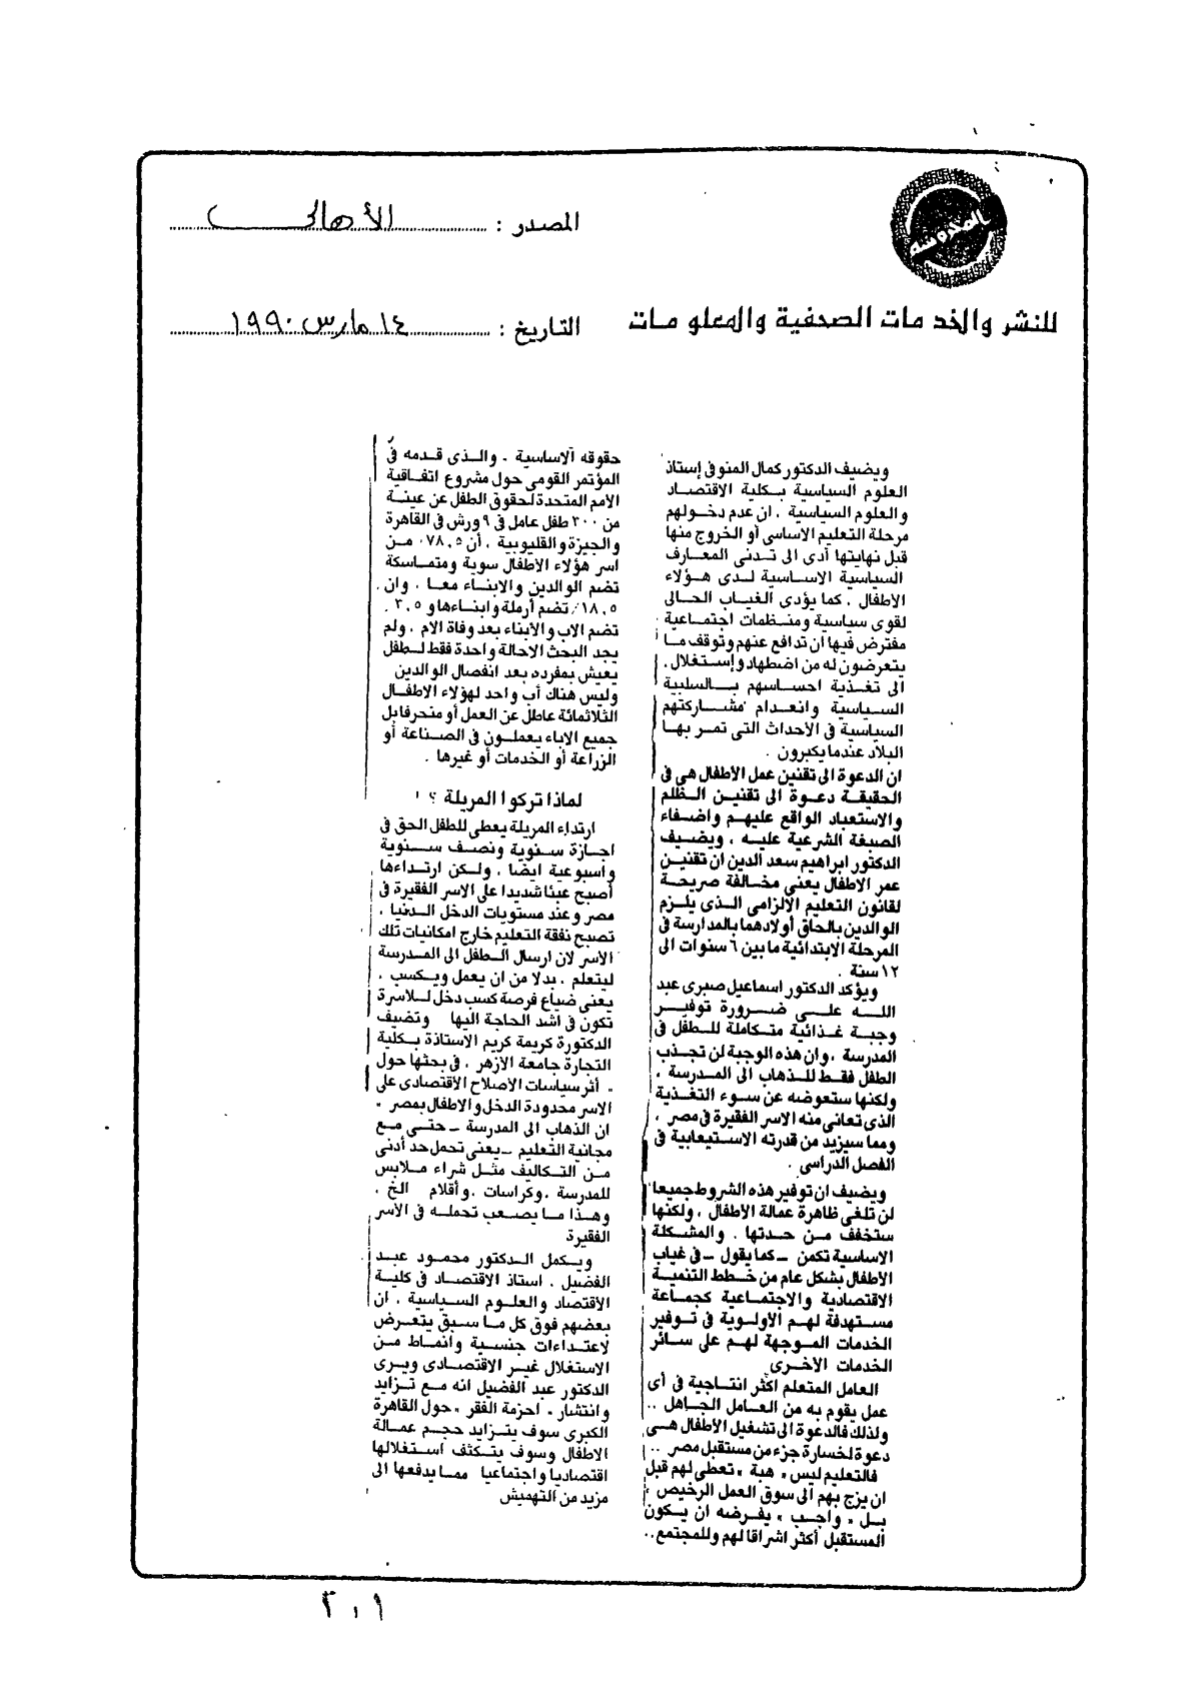 المصدر : الأهالى
المحروسة
للنشر والخدمات الصحفية والمعلومات
التاريخ : ١٤ مارس ١٩٩٠
ويضيف الدكتور كمال المنوفى إستاذ
العلوم السياسية بكلية الاقتصاد
والعلوم السياسية ، ان عدم دخولهم
مرحلة التعليم الاساسى أو الخروج منها
قبل نهايتها أدى الى تدنى المعارف
السياسية الاساسية لدى هؤلاء
الاطفال ، كما يؤدى الغياب الحالى
لقوى سياسية ومنظمات اجتماعية
مفترض فيها ان تدافع عنهم وتوقف ما
يتعرضون له من اضطهاد وإستغلال ،
الى تغذية احساسهم بالسلبية
السياسية وانعدام مشاركتهم
السياسية فى الأحداث التى تمر بها
البلاد عندما يكبرون .
ان الدعوة الى تقنين عمل الاطفال هى فى
الحقيقة دعوة الى تقنين الظلم
والاستعباد الواقع عليهم واضفاء
الصبغة الشرعية عليه ، ويضيف
الدكتور ابراهيم سعد الدين ان تقنين
عمر الاطفال يعنى مخالفة صريحة
لقانون التعليم الإلزامى الذى يلزم
الوالدين بالحاق أولادهما بالمدارسة فى
المرحلة الابتدائية ما بين ٦ سنوات الى
١٢ سنة .
ويؤكد الدكتور اسماعيل صبرى عبد
الله على ضرورة توفير
وجبة غذائية متكاملة للطفل فى
المدرسة ، وان هذه الوجبة لن تجذب
الطفل فقط للذهاب الى المدرسة ،
ولكنها ستعوضه عن سوء التغذية
الذى تعانى منه الاسر الفقيرة فى مصر ،
ومما سيزيد من قدرته الاستيعابية فى
الفصل الدراسى .
ويضيف ان توفير هذه الشروط جميعا
لن تلغى ظاهرة عمالة الاطفال ، ولكنها
ستخفف من حدتها . والمشكلة
الاساسية تكمن ـ كما يقول ـ فى غياب
الأطفال بشكل عام من خطط التنمية
الاقتصادية والاجتماعية كجماعة
مستهدفة لهم الأولوية فى توفير
الخدمات الموجهة لهم على سائر
الخدمات الأخرى
العامل المتعلم اكثر انتاجية فى أى
عمل يقوم به من العامل الجاهل ..
ولذلك فالدعوة الى تشغيل الأطفال هى
دعوة لخسارة جزء من مستقبل مصر ..
فالتعليم ليس « هبة » تعطى لهم قبل
ان يزج بهم الى سوق العمل الرخيص ،
بل « واجب » يفرضه ان يكون
المستقبل أكثر اشراقا لهم وللمجتمع ..
حقوقه الاساسية . والذى قدمه فى
المؤتمر القومى حول مشروع اتفاقية
الأمم المتحدة لحقوق الطفل عن عينة
من ٣٠٠ طفل عامل فى ٩ ورش فى القاهرة
والجيزة والقليوبية ، أن ٧٨,٥٪ من
اسر هؤلاء الأطفال سوية ومتماسكة
تضم الوالدين والابناء معا ، وان
١٨,٥٪ تضم أرملة وابناءها و ٣,٥ .
تضم الاب والأبناء بعد وفاة الام ، ولم
يجد البحث الا حالة واحدة فقط لطفل
يعيش بمفرده بعد انفصال الوالدين
وليس هناك أب واحد لهؤلاء الاطفال
الثلاثمائة عاطل عن العمل أو منحرف ابل
جميع الاباء يعملون فى الصناعة أو
الزراعة أو الخدمات أو غيرها .
لماذا تركوا المريلة ؟ !
ارتداء المريلة يعطى للطفل الحق فى
اجازة سنوية ونصف سنوية
وأسبوعية ايضا ، ولكن ارتداءها
أصبح عبئا شديدا على الاسر الفقيرة فى
مصر وعند مستويات الدخل الدنيا ،
تصبح نفقة التعليم خارج امكانيات تلك
الأسر لان ارسال الطفل الى المدرسة
ليتعلم ، بدلا من ان يعمل ويكسب ،
يعنى ضياع فرصة كسب دخل للاسرة
تكون فى اشد الحاجة اليها وتضيف
الدكتورة كريمة كريم الاستاذة بكلية
التجارة جامعة الازهر ، فى بحثها حول
« أثر سياسات الإصلاح الاقتصادى على
الاسر محدودة الدخل والاطفال بمصر »
ان الذهاب الى المدرسة ـ حتى مع
مجانية التعليم ـ يعنى تحمل حد أدنى
من التكاليف مثل شراء ملابس
للمدرسة ، وكراسات ، وأقلام الخ ،
وهذا ما يصعب تحمله فى الأسر
الفقيرة
ويكمل الدكتور محمود عبد
الفضيل ، استاذ الاقتصاد فى كلية
الاقتصاد والعلوم السياسية ، ان
بعضهم فوق كل ما سبق يتعرض
لاعتداءات جنسية وانماط من
الاستغلال غير الاقتصادى ويرى
الدكتور عبد الفضيل انه مع تزايد
وانتشار « احزمة الفقر » حول القاهرة
الكبرى سوف يتزايد حجم عمالة
الاطفال وسوف يتكثف استغلالها
اقتصاديا واجتماعيا مما يدفعها الى
مزيد من التهميش
٣٠١